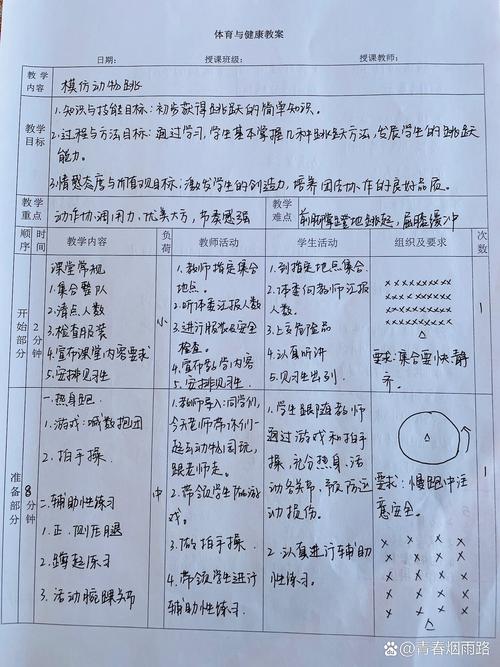 体育与健康教案
日期: 授课班级: 授课教师:
教学内容 模仿动物跳
教学目标
1.知识与技能目标:初步获得跳跃的简单知识。
2.过程与方法目标:通过学习,学生基本掌握几种跳跃方法,发展学生的跳跃
能力。
3.情感态度与价值观目标:激发学生的创造力,培养团结协作的良好品质。
教学重点 动作协调用力、优美大方,节奏感强
教学难点 前脚掌蹬地跳起,屈膝缓冲
顺序 时间 教学内容 负荷 教师活动 学生活动 组织及要求 次数
开始部分
2分钟
课堂常规
1.集合整队
2.清点人数
3.检查服装
4.宣布课堂内容要求
5.安排见习生
小
1.教师指定集合
地点。
2.听体委汇报人数
3.进行服装及安全
检查。
4.宣布教学内容
5.安排见习生
1.到指定地点集合.
2.体委向教师汇报
人数。
3.上交危险品
4.认真听讲
5.见习生出列
要求:集合要快静
齐。
1
准备部分
8分钟
一.热身跑
1.游戏:喊数抱团
2.拍手操
二.辅助性练习
1.正、侧压腿
2.蹲起练习
3.活动腕踝关节
中
1.教师导入:同学们,
今天老师带你们一
起去动物园玩,
跟老师走。
2.带领学生做游
戏。
3.做拍手操.
4.带领学生进行
辅助性练习.
1.学生跟随教师
通过游戏和拍手
操,充分热身、活
动各关节,预防运
动损伤。
2.认真进行辅助
性练习。
要求:慢跑中注
意安全。
1
百家号/青春烟雨路